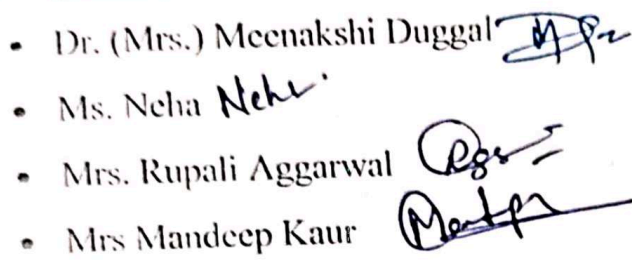 • Dr. (Mrs.) Meenakshi Duggal
• Ms. Neha Neha
• Mrs. Rupali Aggarwal
• Mrs Mandeep Kaur